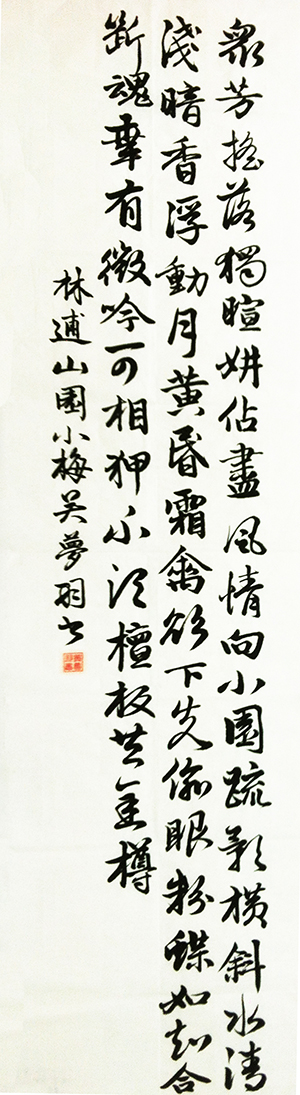 众芳摇落獨暄妍佔盡風情向小園疏影横斜水清
淺暗香浮動月黄昏霜禽欲下先偷眼粉蝶如知合
斷魂幸有微吟可相狎不須檀板共金樽
林逋山園小梅吴夢羽书